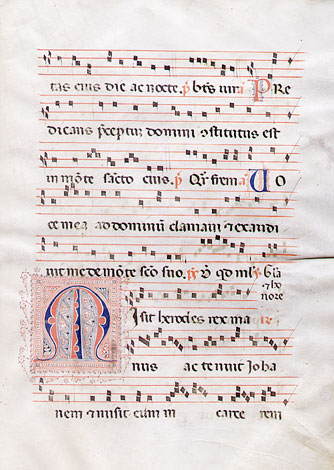 tas eius die ac nocte. p̄ bt̄s vir a PRe
dicans p̄ceptum domini ↄstitutus est
in mōte sancto eius. p̄ Qr̄ frem a VO
ce mea ad dominum clamavi ⁊ exaudi
uit me de mōte sc̄o suo. qd ml Gl̄a
⁊ hōnore
Misit herodes rex ma
nus ac tenuit Joha
nem ⁊ misit eum in carce rem